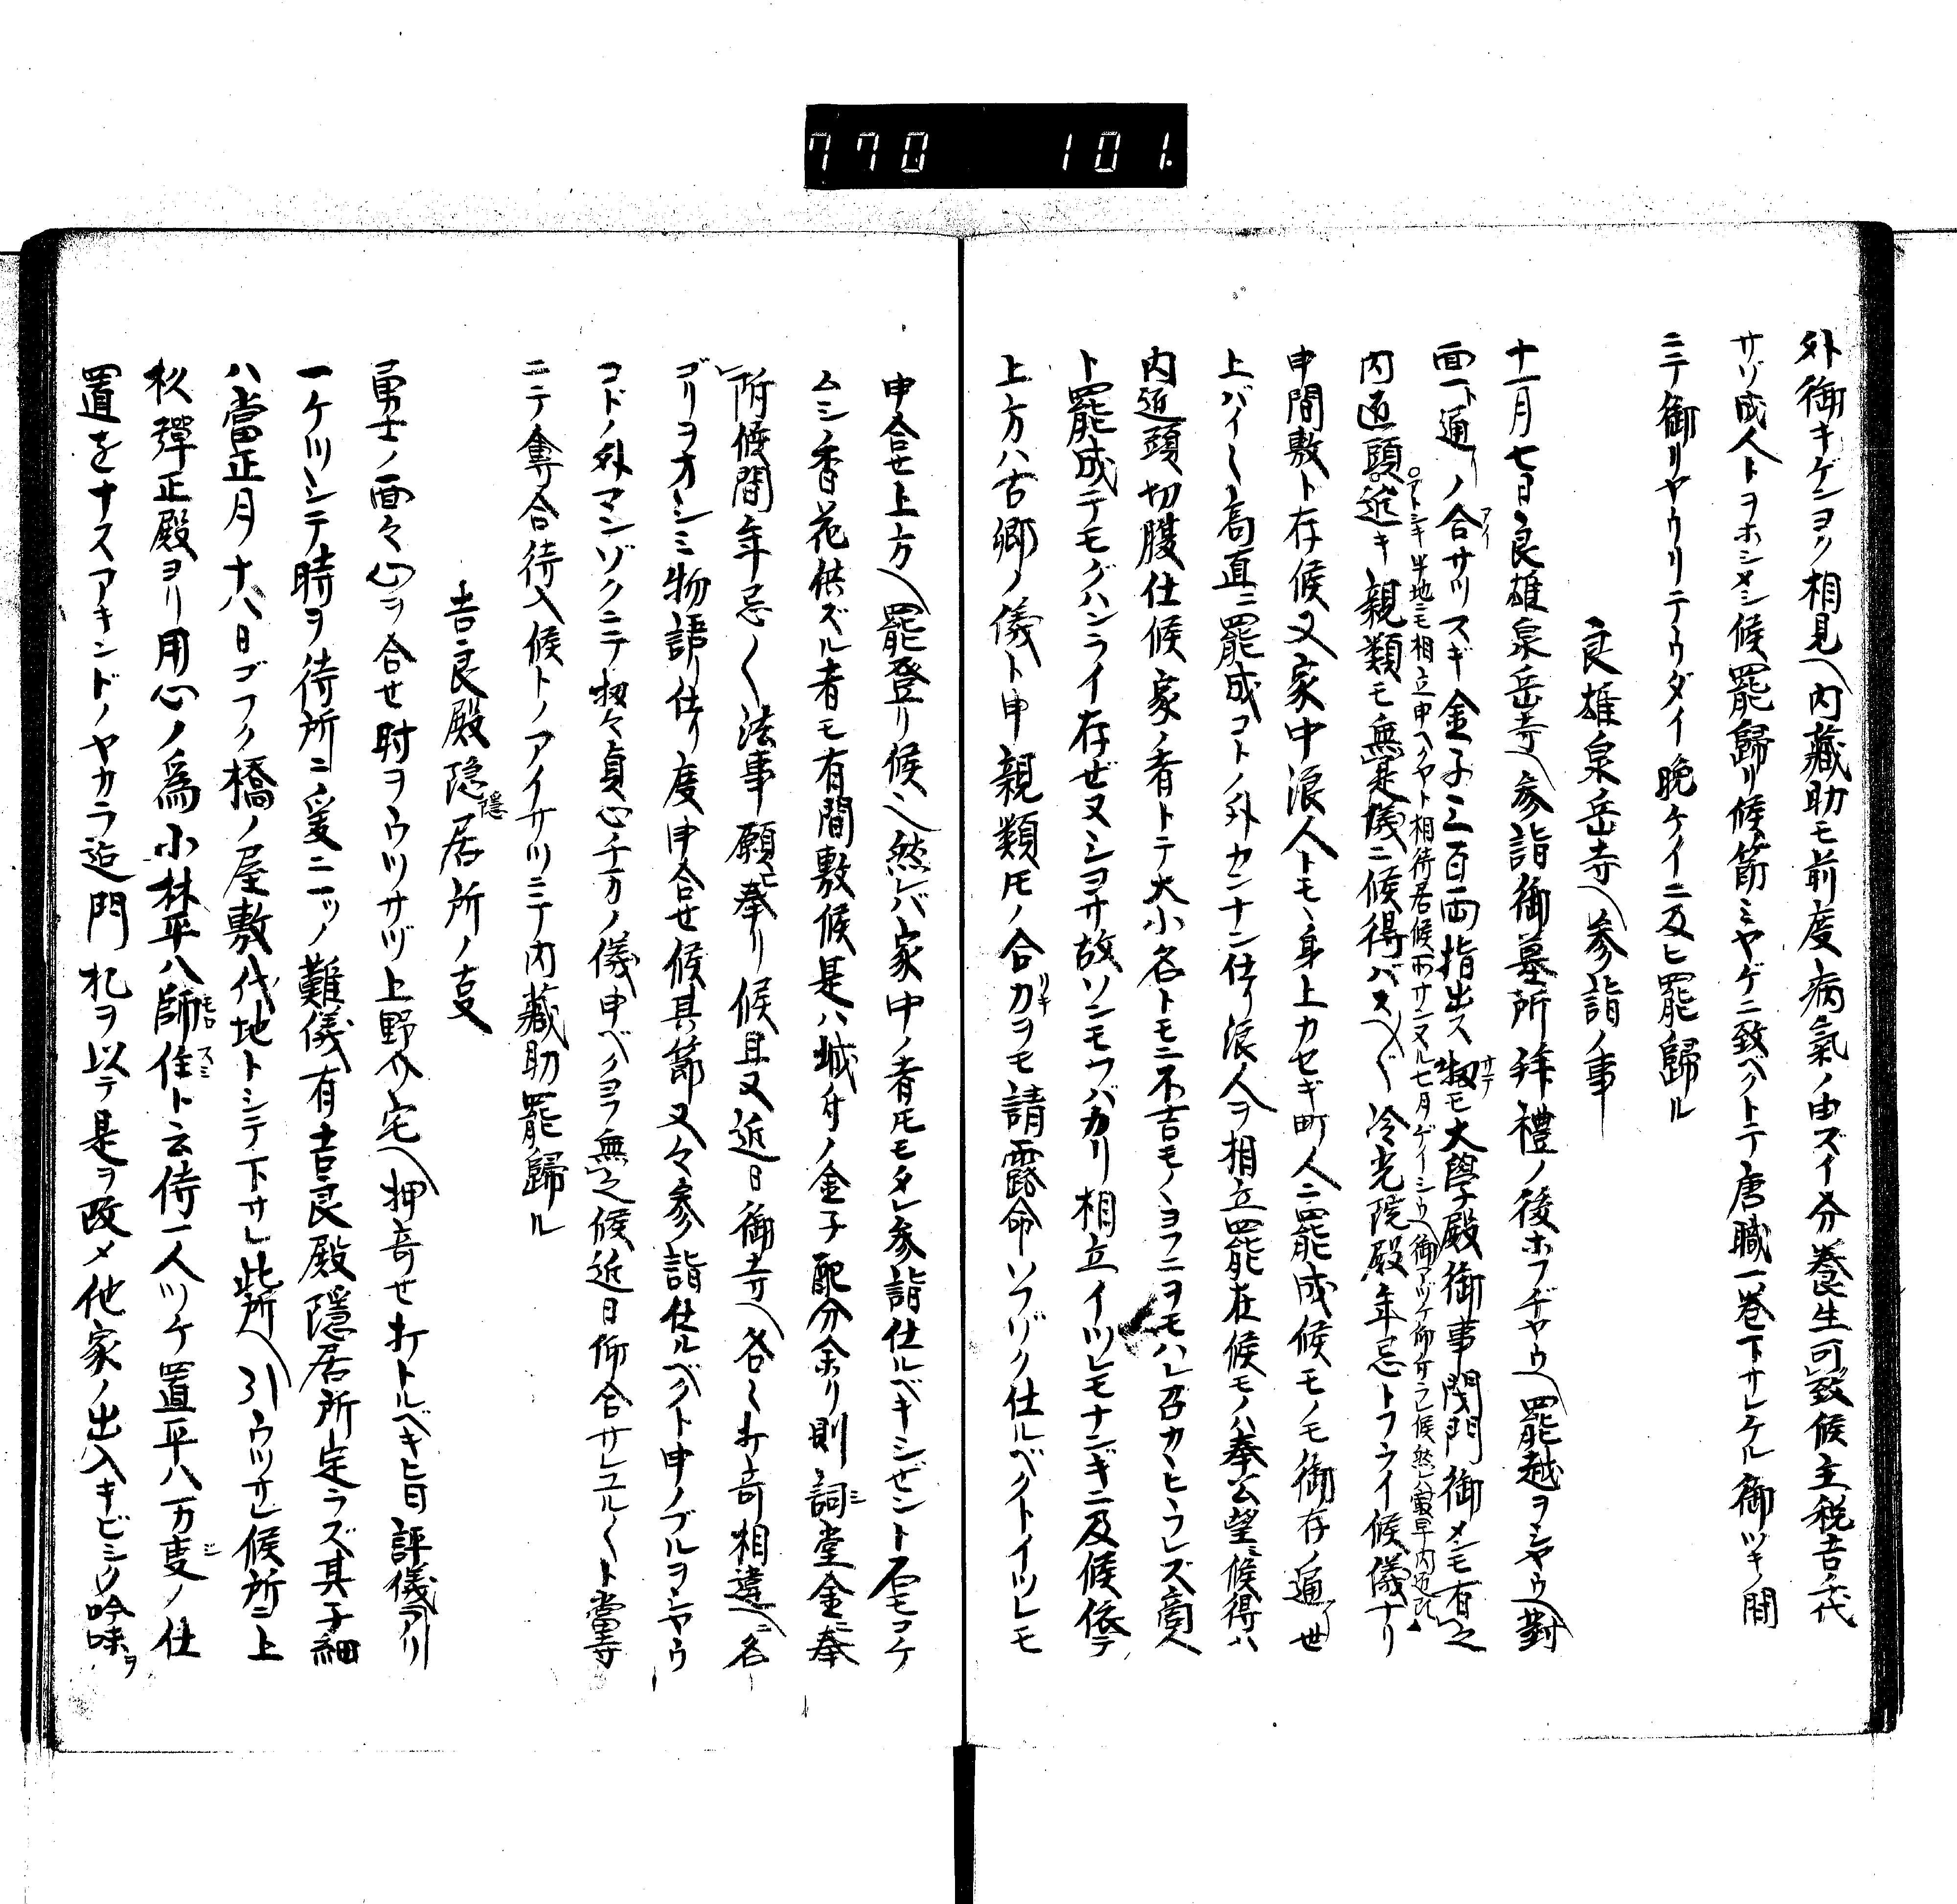 770 101.
外御キゲンヨク相見ヘ内藏助モ前度病氣ノ由ズイ分養生可致候主税吉千代
サゾ成人トヲホシメシ候罷歸リ候節ミヤゲニ致ベクトテ唐職一巻下サレケル御ツキノ間
ニテ御リヤウリテウダイ晩ケイニ及ヒ罷歸ル
良雄泉岳寺ヘ参詣ノ事
十一月七日良雄泉岳寺ヘ参詣御墓所拜禮ノ後ホフヂヤウヘ罷越ヲシヤウヘ對
面一ト通リノ合サツスギ金子三百両指出ス扨モ大學殿御事閉門御メンモ有之
内匠頭近キ親類モ無是儀ニ候得バスヘ〲冷光院殿年忌トフラウイ候儀ナリ
申間敷ト存候又家中浪人トモヽ身上カセギ町人ニ罷成候モノモ御存ノ通リ世
上バイ〱高直ニ罷成コトノ外カンナン仕リ浪人ヲ相立罷在候モノハ奉公望ニ候得ハ
内匠頭切腹仕候家ノ者トテ大小名トモニ不吉モノヽヨフニヲモハレ召カヽヒラレズ商人
ト罷成テモグハンライ存ゼヌシヨサ故ソンモウバカリ相立イツレモナンギニ及候依テ
上方ハ古郷ノ儀ト申親類氏ノ合力ヲモ請露命ツヅク仕ルベクトイツレモ
申合セ上方ヘ罷登リ候ヘ然レバ家中ノ者氏モタレ参詣仕ルベキシゼント石モコケ
ムシノ香花供ズル者モ有間敷候是ハ城付ノ金子配分余リ則詞堂金ニ奉
附候間年忌〱法事願ヒ奉リ候且又近日御寺ヘ各〱打寄相違ヘ名
ゴリヲオシミ物語リ仕リ度申合セ候其節又々参詣仕ルベクト申ノブルヲシヤウ
コトノ外マンゾクニテ扨々貞心千万ノ儀申ベクヨフ無之候近日仰合サレユル〱ト當寺
ニテ奪合待入候トノアイサツニテ内藏助罷リ歸ル
吉良殿隐居所ノ亊
勇士ノ面々心ヲ合セ時ヲウツサヅ上野介宅ヘ押寄せ打トルベキ旨評儀アリ
一ケツシテ時ヲ待所ニ爰ニ一ツノ難儀有吉良殿隱居所定ラズ其子細
ハ當正月十八日ゴフク橋ノ屋敷代地トシテ下サレ此所ヘ引ウツサレ候所ニ上
杉彈正殿ヨリ用心ノ爲小林平八師住ト云侍一人ツケ置平八万亊ノ仕
置をナスアキンドノヤカラ迄門札ヲ以テ是ヲ改メ他家ノ出入キビシク吟味ヲ